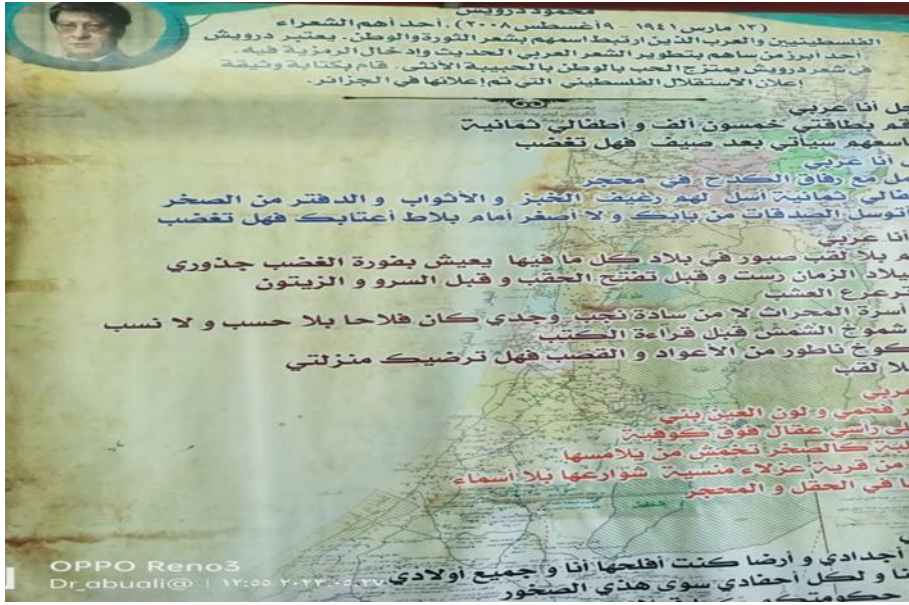 محمود درويش
(١٣ مارس ١٩٤١ - ٩ أغسطس ٢٠٠٨)، أحد أهم الشعراء
الفلسطينيين والعرب الذين ارتبط اسمهم بشعر الثورة والوطن. يعتبر درويش
أحد أبرز من ساهم بتطوير الشعر العربي الحديث وإدخال الرمزية فيه.
في شعر درويش يمتزج الحب بالوطن بالحبيبة الأنثى. قام بكتابة وثيقة
إعلان الاستقلال الفلسطيني التي تم إعلانها في الجزائر.
أنا عربي
بطاقتي خمسون ألف و أطفالي ثمانية
سيأتي بعد صيف فهل تغضب
أنا عربي
مع رفاق الكدح في محجر
ثمانية أسل لهم رغيف الخبز و الأثواب و الدفتر من الصخر
أتوسل الصدقات من بابك و لا أصغر أمام بلاط أعتابك فهل تغضب
أنا عربي
بلا لقب صبور في بلاد كل ما فيها يعيش بفورة الغضب جذوري
ميلاد الزمان رست و قبل تفتح الحقب و قبل السرو و الزيتون
ترعرع العشب
أسرة المحراث لا من سادة نجب وجدي كان فلاحا بلا حسب و لا نسب
شموخ الشمس قبل قراءة الكتب
كوخ ناطور من الأعواد و القصب فهل ترضيك منزلتي
لقب
عربي
فحمي و لون العين بني
راسي عقال فوق كوفية
كالصخر تخمش من يلامسها
من قرية عزلاء منسية شوارعها بلا أسماء
في الحقل و المحجر
أجدادي و أرضا كنت أفلحها أنا و جميع أولادي
و لكل أحفادي سوى هذي الصخور
OPPO Reno3
Dr_abuali@ | ١٢:٥٥ ٢٠٢٣.٠٥.٢٧